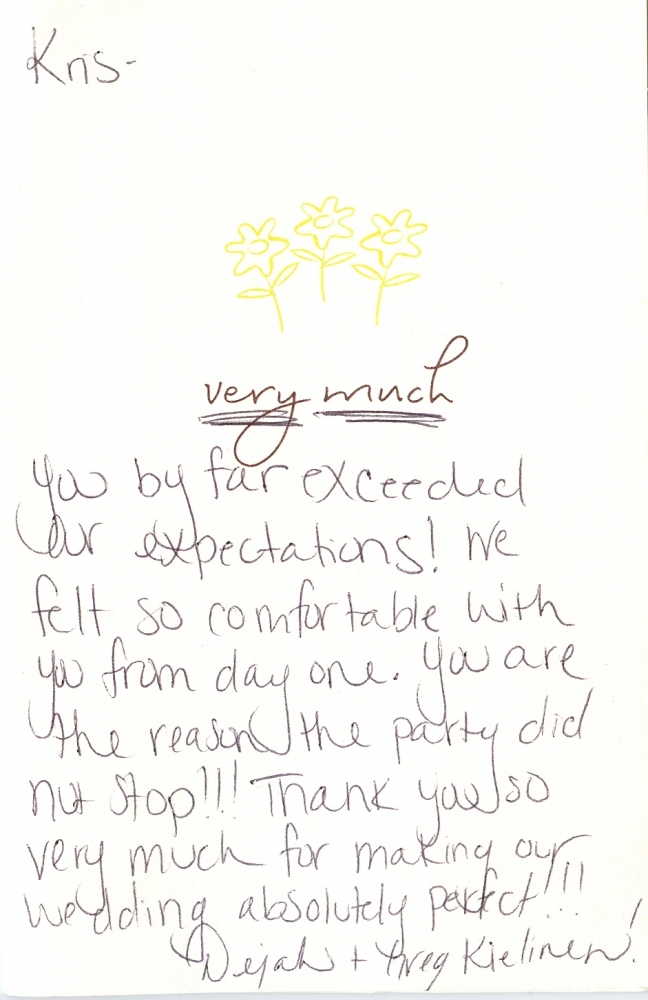 Kris-
very much
You by far exceeded
our expectations! We
felt so comfortable with
you from day one. You are
the reason the party did
not stop!!! Thank you so
very much for making our
wedding absolutely perfect!!!
Dejah + Greg Kielinen!